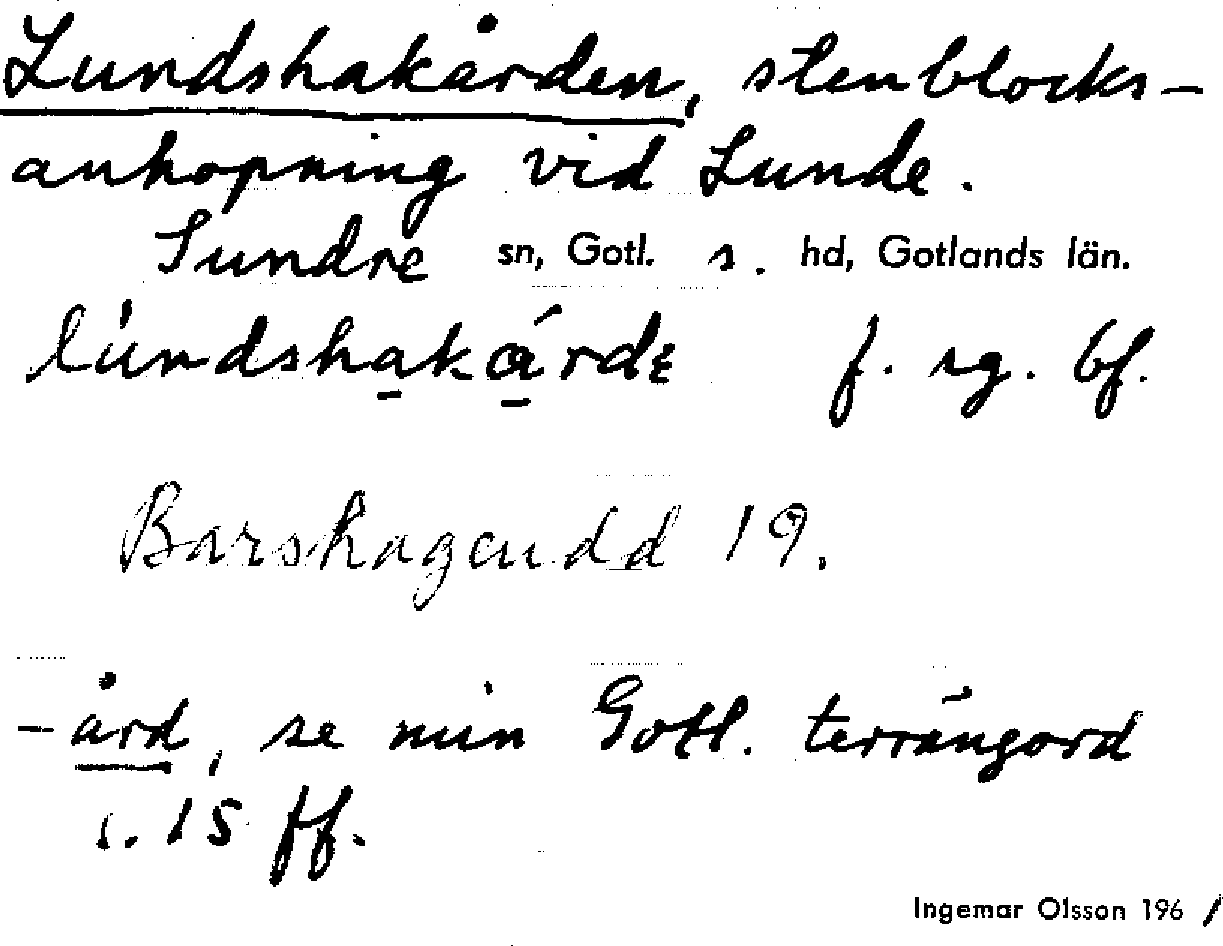 Lundshakården, stenblocks-
anhopning vid Lunde.
Sundre sn, Gotl. s. hd, Gotlands län.
lùndshakárdɛ f. sg. bf.
Barshageudd 19.
-ård, se min Gotl. terrängord
s. 15 ff.
Ingemar Olsson 1961